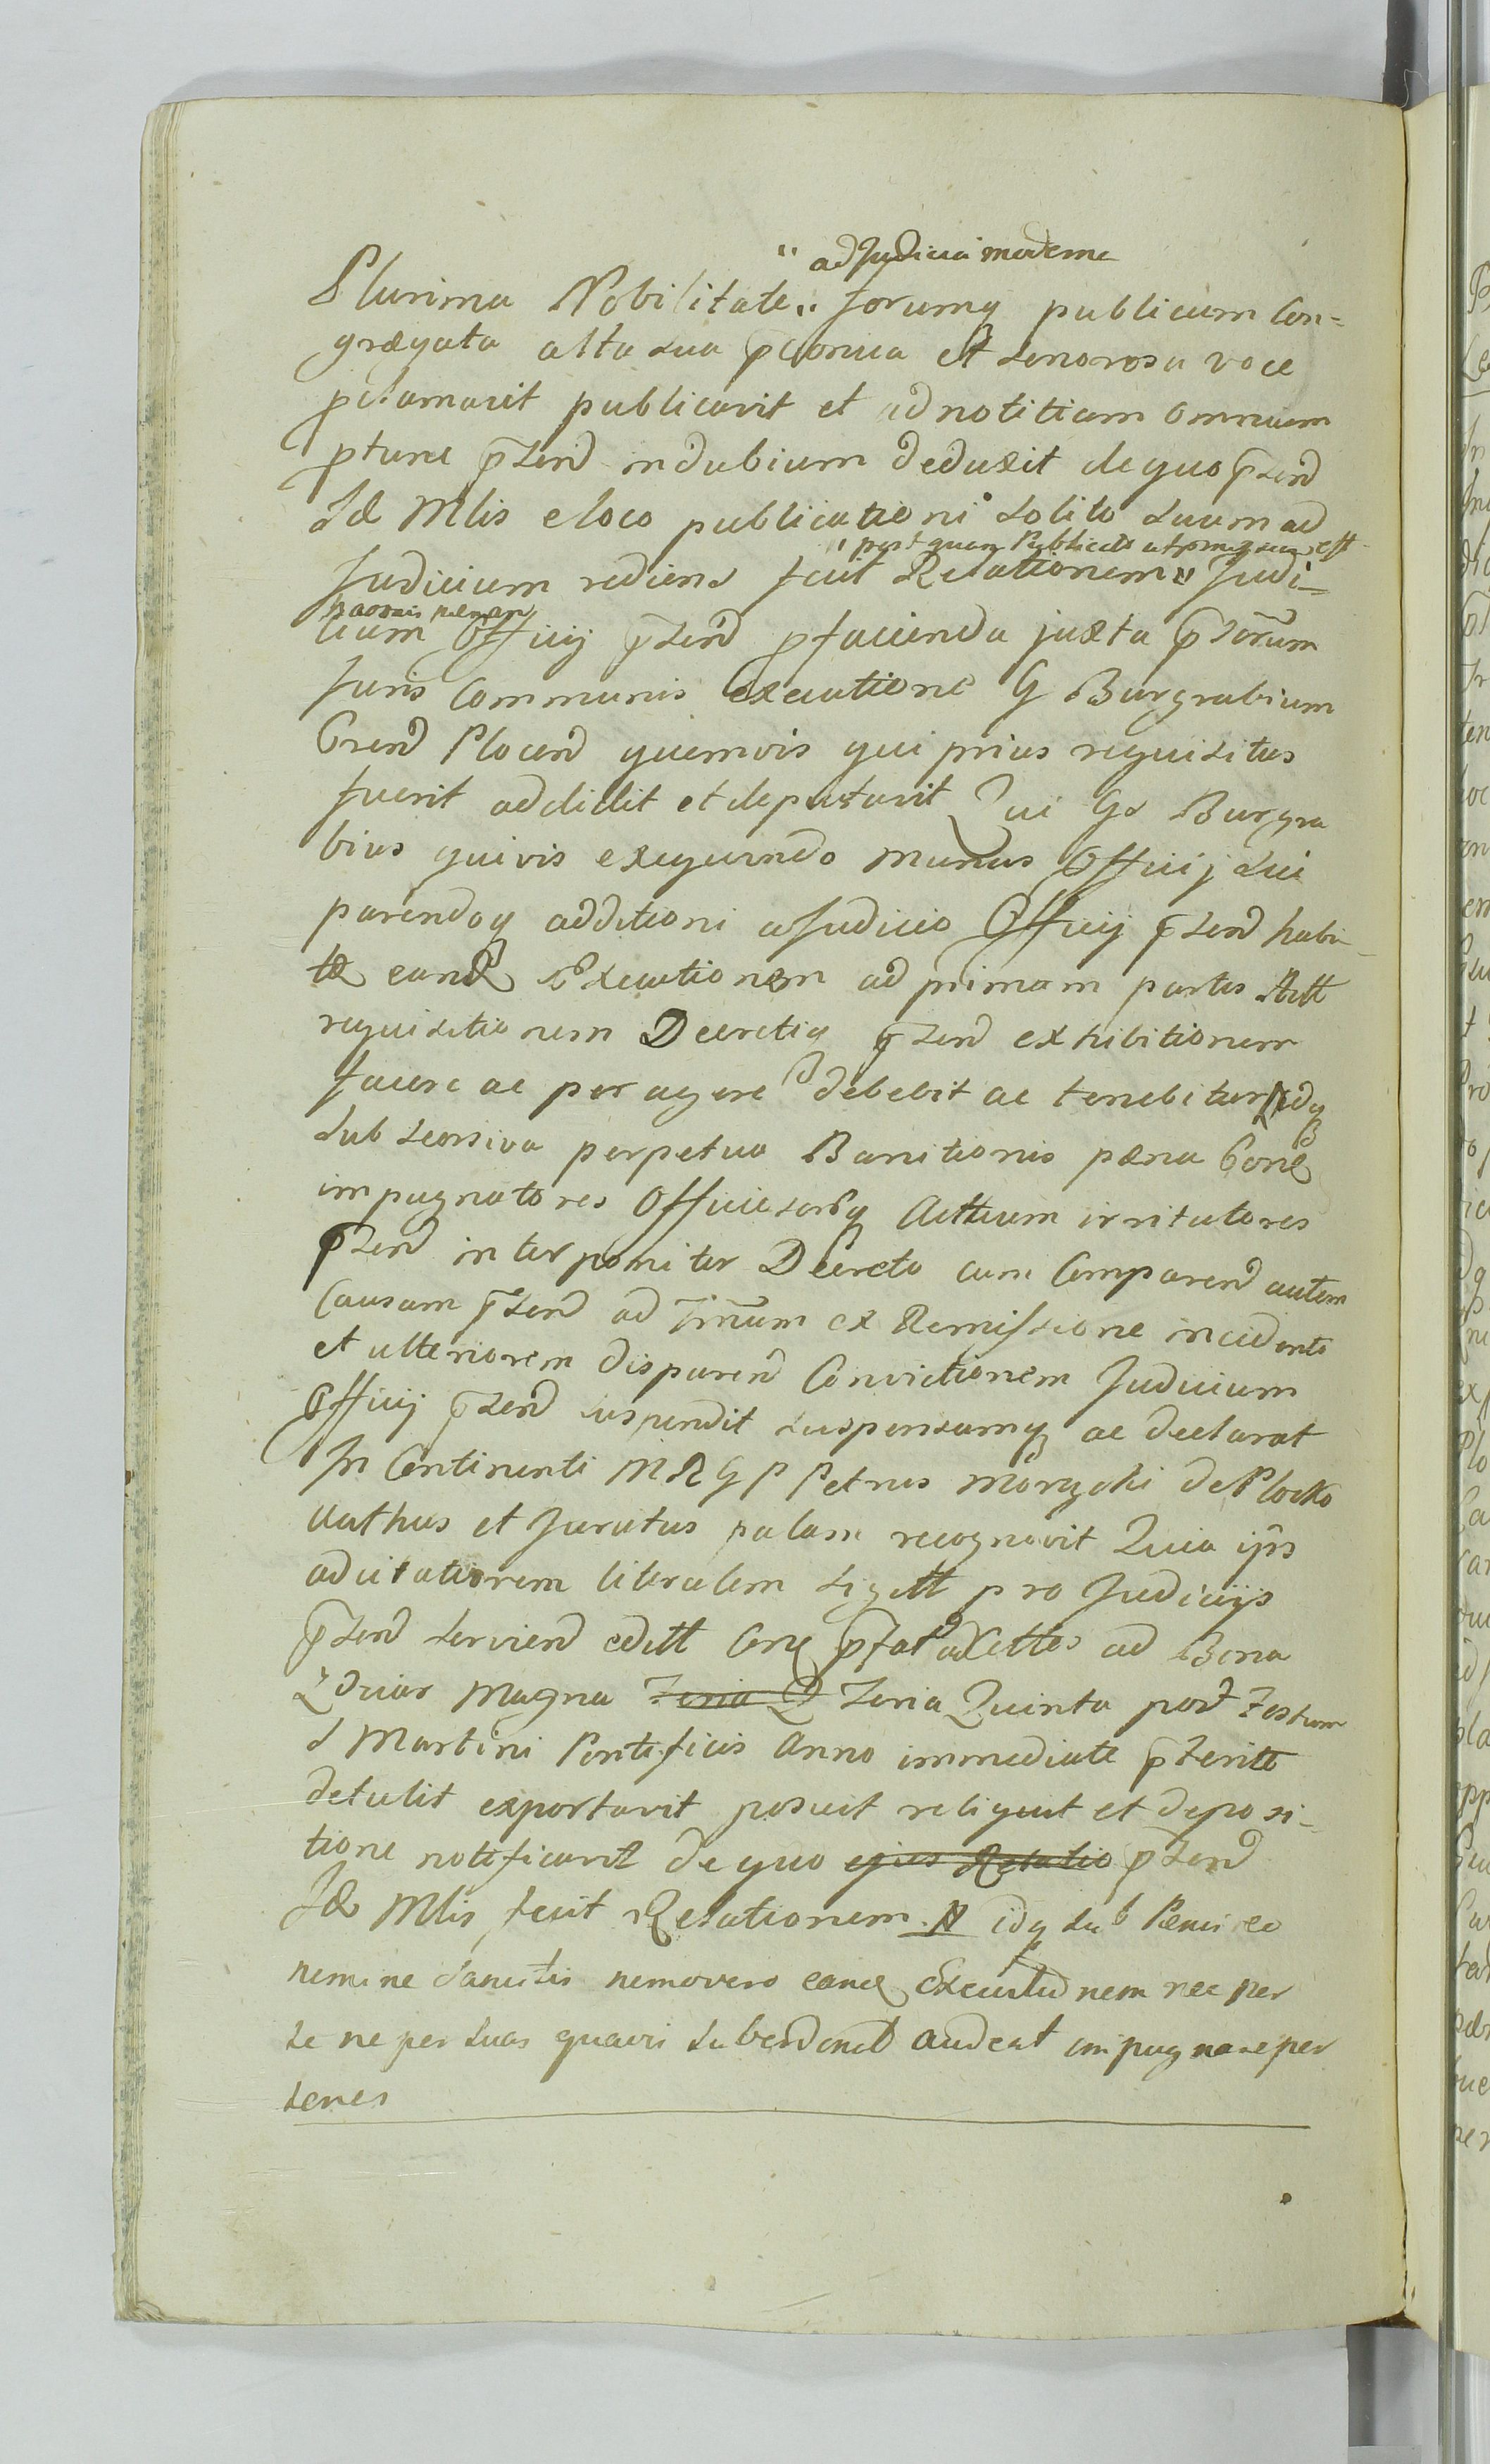 " ad Judicia moderna
Plurima Nobilitate " forumq publicum Con-
grægata alta sua et sonorosa voce
pclamavit publicavit et ad notitiam omnium
ptunc pnd indubium deduxit de quo psend
Idē Mlis e loco publicationi solito suum ad
" post quam
Judicium rediens fecit Relationem " Judi-
cium Officij psend p facienda juxta psorum
Juris Communis executione G Burgrabium
Crend Plocend quemvis qui prius requisitus
fuerit addidit et deputavit Qui Gs Burgra
bius quivis exequendo munus Officij sui
parendoq additioni a Judicio Officij psend habi-
tæ eandē Executionem ad primam partis Actt
requisitionem Decretiq psend exhibitionem
facere ac peragere debebit ac tenebitur N idq
sub seorsiva perpetua Banitionis pæna Cone
impugnatores Officiosorq Actuum irritatores
psend interponitur Decreto cum Comparend autem
Causam psend ad Tmūm ex Remissione incidente
et ulteriorem disparend Convictionem Judicium
Officij psend suspendit suspensamq ac declarat
In Continenti M R G P Petrus de Plocko
authus et Juratus palam recognovit Quia ipse
ad citationem literalem sigitt pro Judicijs
psend serviend editt Cone pfat ad Bona
Zdwiar Magna Feria Q Feria Quinta post Festum
S Martini Pontificis Anno immediate pteritt
detulit exportavit posuit reliquit et deposi-
tione notificavit de quo ejus Relatio psend
Idē Mlis fecit Relationem N idq sub Pænis
nemine nemo vero eandē Executionem nec per
se ne per suas quavis subordinatt audeat impugnare per
sones